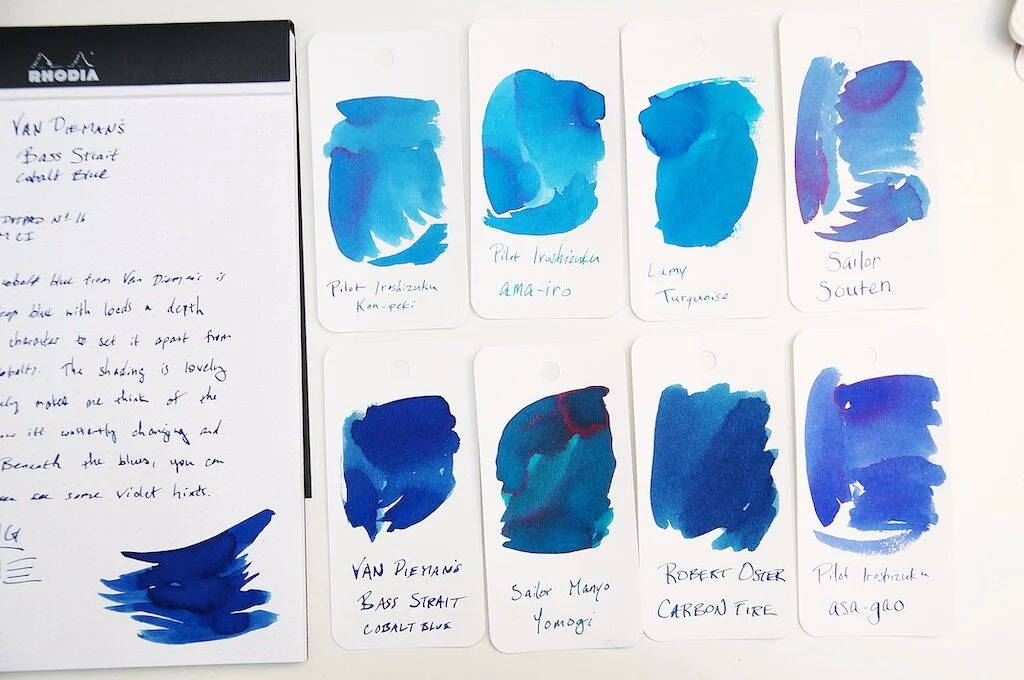 RHODIA
VAN DIEMAN'S
Bass Strait
Cobalt Blue
Nº 16
cobalt blue from Van Dieman's is
blue with loads a depth
character to set it apart from
The shading is lovely
makes me think of the
its constantly changing and
Beneath the blues, you can
see some violet hints.
Pilot Iroshizuku
Kon-peki
Pilot Iroshizuku
ama-iro
Lamy
Turquoise
Sailor
Souten
VAN DIEMAN'S
BASS STRAIT
COBALT BLUE
Sailor Manyo
Yomogi
ROBERT OSTER
CARBON FIRE
Pilot Iroshizuku
asa-gao